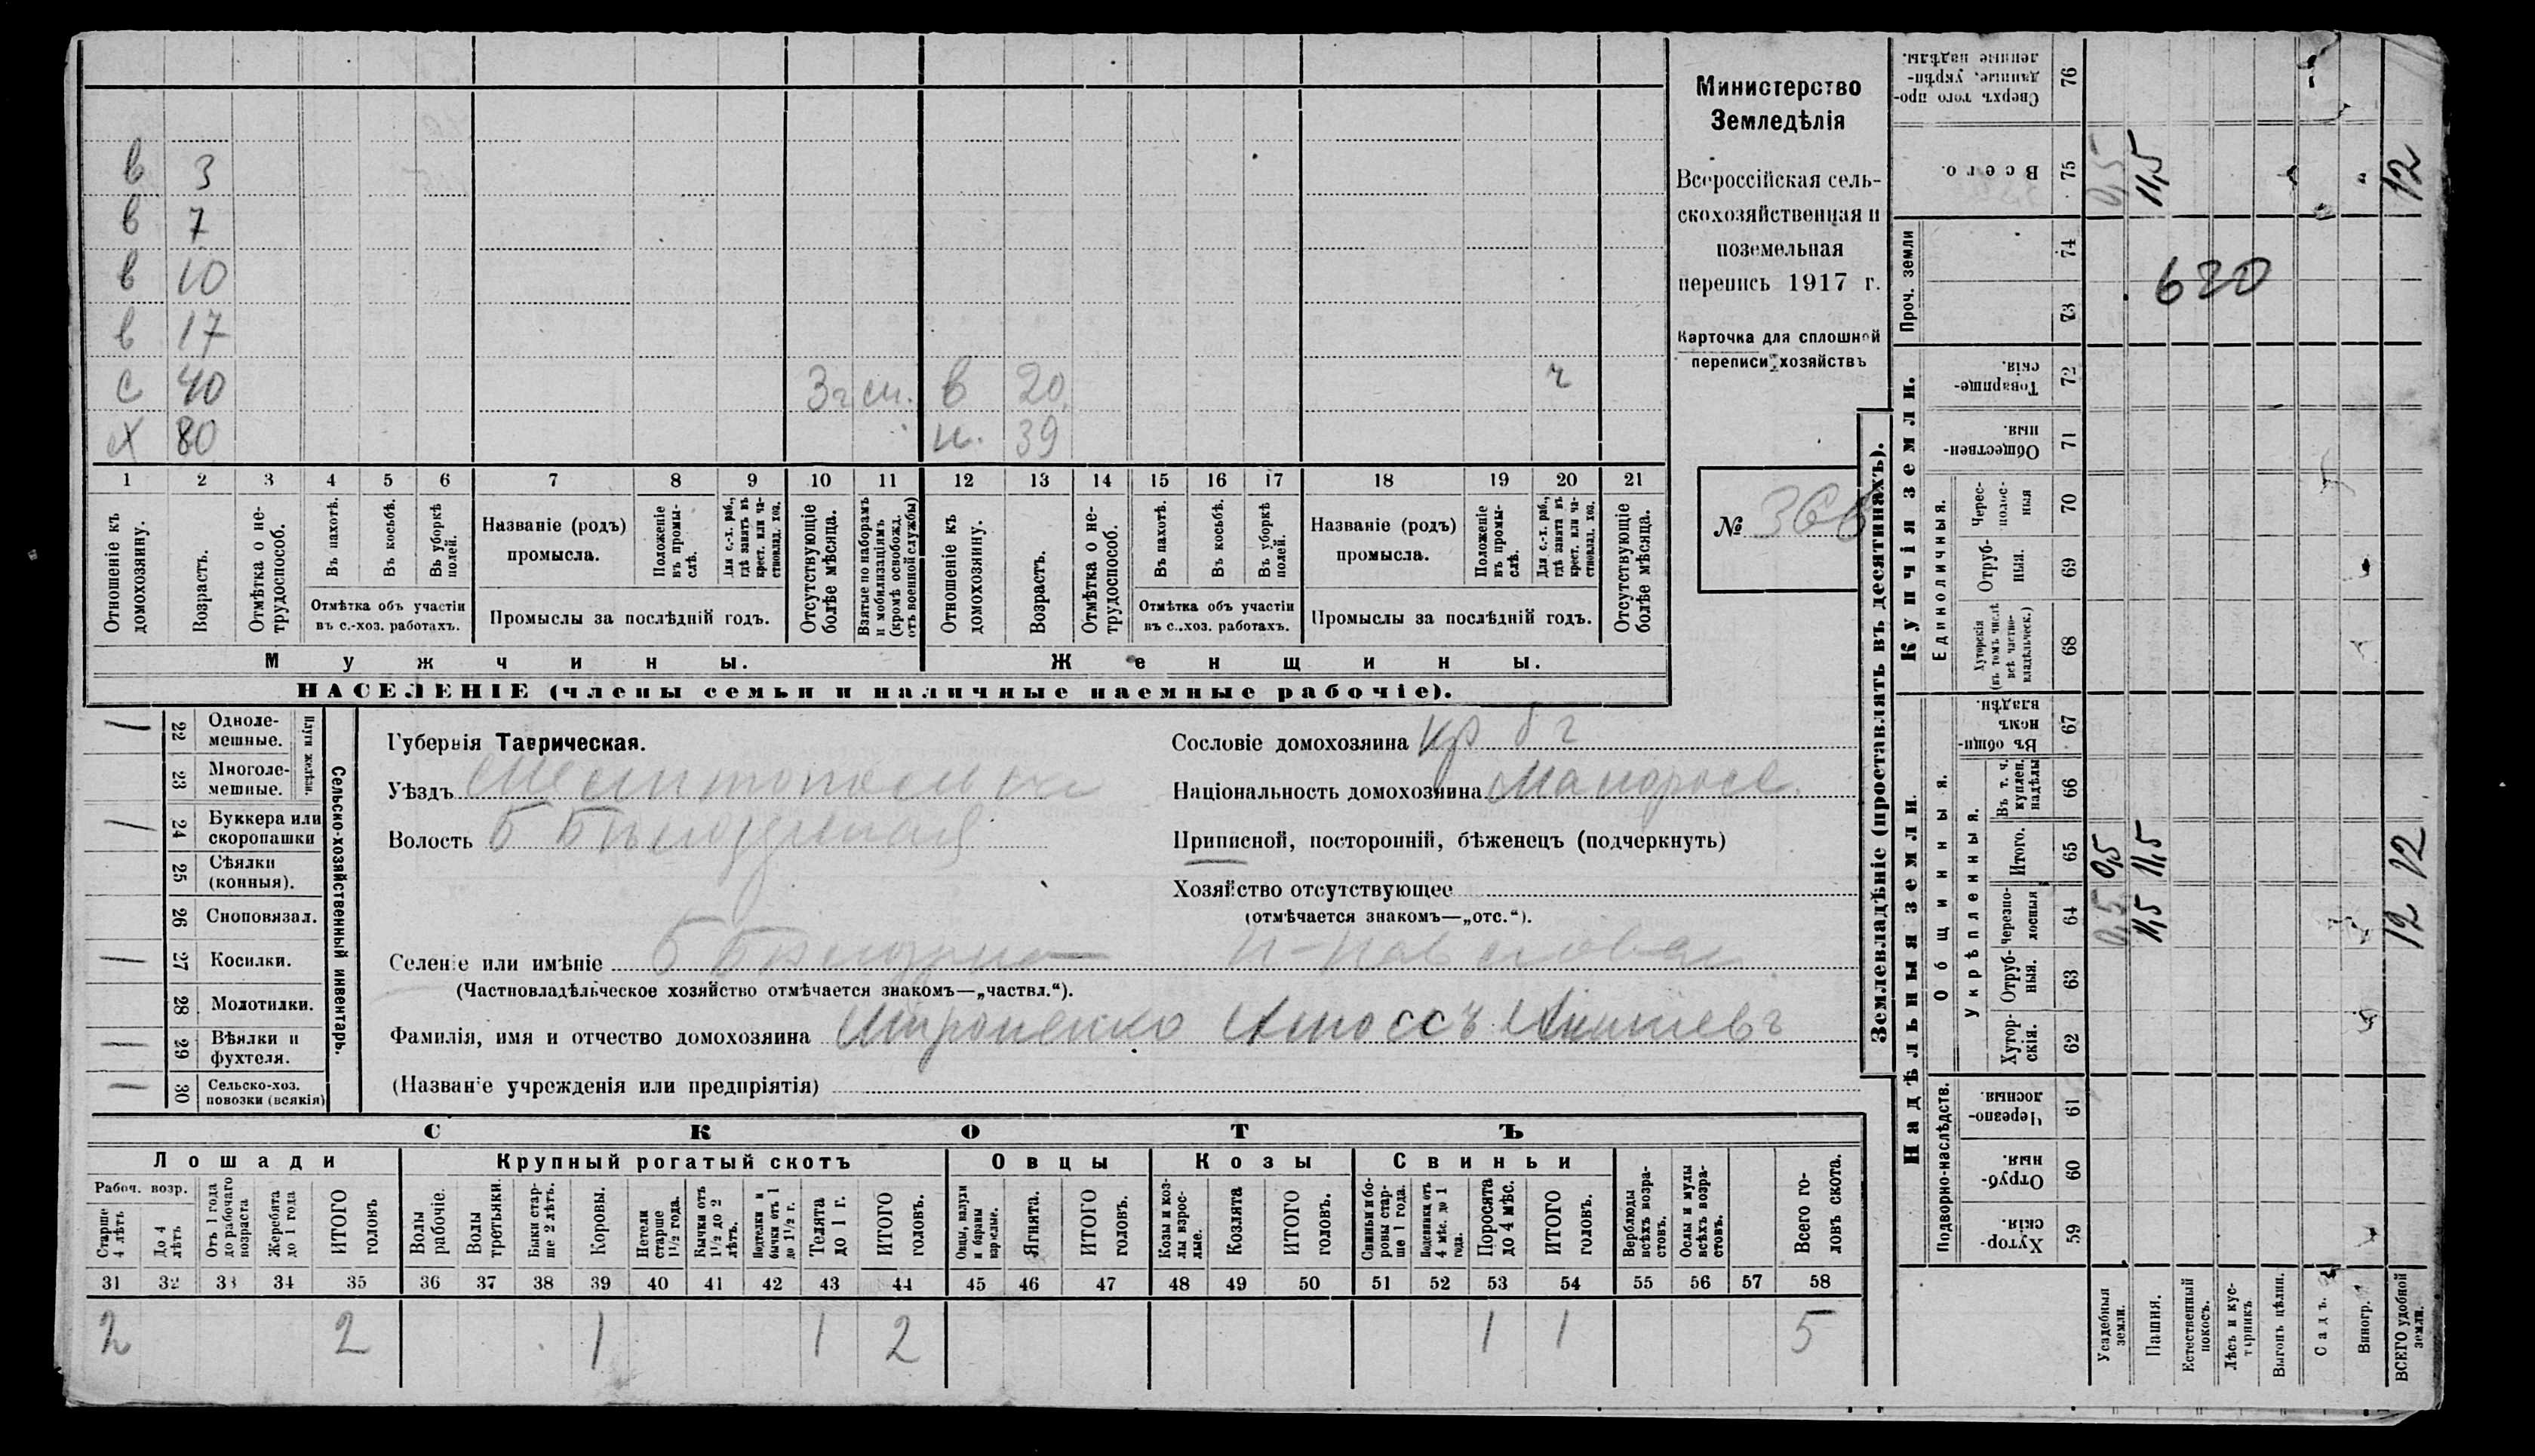 Министерство
Земледѣлія
Всероссійская сель-
скохозяйственная и
поземельная
перепись 1917 г.
Карточка для сплошной
переписи хозяйствъ
№ 366
в 3
в 7
в 10
в 17
с 40 3г см. в 20 ч
Х 80 н. 39
1 2 3 4 5 6 7 8 9 10 11 12 13 14 15 16 17 18 19 20 21
Отношеніе къ домохозяину.
Возрастъ.
Отмѣтка о не-трудоспособ.
Въ пахотѣ.
Въ косьбѣ.
Въ уборкѣ полей.
Отмѣтка объ участіи
въ с.-хоз. работахъ.
Названіе (родъ)
промысла.
Положеніе въ промы-слѣ.
Для с.-х. раб., гдѣ занятъ въ крест. или ча-стновлад. хоз.
Промыслы за послѣдній годъ.
Отсутствующіе болѣе мѣсяца.
Взятые по наборамъ и мобилизаціямъ (кромѣ освобожд. отъ военной службы)
Отношеніе къ домохозяину.
Возрастъ.
Отмѣтка о не-трудоспособ.
Въ пахотѣ.
Въ косьбѣ.
Въ уборкѣ полей.
Отмѣтка объ участіи
въ с.-хоз. работахъ.
Названіе (родъ)
промысла.
Положеніе въ промы-слѣ.
Для с.-х. раб., гдѣ занята въ крест. или ча-стновлад. хоз.
Промыслы за послѣдній годъ.
Отсутствующіе болѣе мѣсяца.
Мужчины. Женщины.
НАСЕЛЕНІЕ (члены семьи и наличные наемные рабочіе).
Сельско-хозяйственный инвентарь.
Плуги желѣзн.
22 Одноле-мешные.
23 Многоле-мешные.
24 Буккера или скоропашки
25 Сѣялки (конныя).
26 Сноповязал.
27 Косилки.
28 Молотилки.
29 Вѣялки и фухтеля.
30 Сельско-хоз. повозки (всякія)
Губернія Таврическая.
Уѣздъ Мелитопольск
Волость Б Бѣлозерская
Селеніе или имѣніе Б Бѣлозерка
(Частновладѣльческое хозяйство отмѣчается знакомъ—„частвл.“).
Фамилія, имя и отчество домохозяина Мироненко Амоссъ
(Названіе учрежденія или предпріятія)
Сословіе домохозяина кр
Національность домохозяина Малоросс.
Приписной, посторонній, бѣженецъ (подчеркнуть)
Хозяйство отсутствующее
(отмѣчается знакомъ—„отс.“).
СКОТЪ
Лошади Крупный рогатый скотъ Овцы Козы Свиньи
Рабоч. возр.
Старше 4 лѣтъ
До 4 лѣтъ
Отъ 1 года до рабочаго возраста
Жеребята до 1 года
ИТОГО головъ
Волы рабочіе.
Волы третьяки.
Быки стар-ше 2 лѣтъ.
Коровы.
Нетели старше 1½ года.
Бычки отъ 1½ до 2 лѣтъ.
Подтелки и бычки отъ 1 до 1½ г.
Телята до 1 г.
ИТОГО головъ.
Овцы, валухи и бараны взрослые.
Ягнята.
ИТОГО головъ.
Козы и коз-лы взрос-лые.
Козлята
ИТОГО головъ.
Свиньи и бо-ровы стар-ше 1 года.
Подсвинки отъ 4 мѣс. до 1 года.
Поросята до 4 мѣс.
ИТОГО головъ.
Верблюды всѣхъ возра-стовъ.
Ослы и мулы всѣхъ возра-стовъ.
Всего го-ловъ скота.
31 32 33 34 35 36 37 38 39 40 41 42 43 44 45 46 47 48 49 50 51 52 53 54 55 56 57 58
2 2 1 1 2 1 1 5
Землевладѣніе (проставлять въ десятинахъ).
Купчія земли.
Проч. земли
Единоличныя.
76 Сверхъ того про-данные, укрѣп-ленные надѣлы.
75 Всего. 0,5 11,5 12
74
73
620
72 Товарище-скія.
71 Обществен-ныя.
70 Черес-полос-ныя
69 Отруб-ныя.
68 Хуторскія (въ томъ числѣ всѣ частно-владѣльческ.)
Надѣльныя земли.
Общинныя.
Укрѣпленныя.
67 Въ общин-номъ владѣн.
66 Въ т. ч. куплен. надѣлы
65 Итого. 0,5 11,5 12
64 Черезпо-лосныя 0,5 11,5 12
63 Отруб-ныя.
62 Хутор-скія.
Подворно-наслѣдств.
61 Черезпо-лосныя.
60 Отруб-ныя.
59 Хутор-скія.
Усадебныя земли.
Пашня.
Естественный покосъ.
Лѣсъ и кус-тарникъ
Выгонъ цѣлин.
Садъ.
Виногр.
ВСЕГО удобной земли.